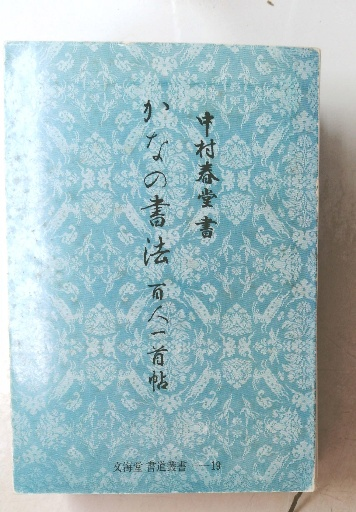 中村春堂書
かなの書法 百人一首帖
文海堂 書道叢書 —19